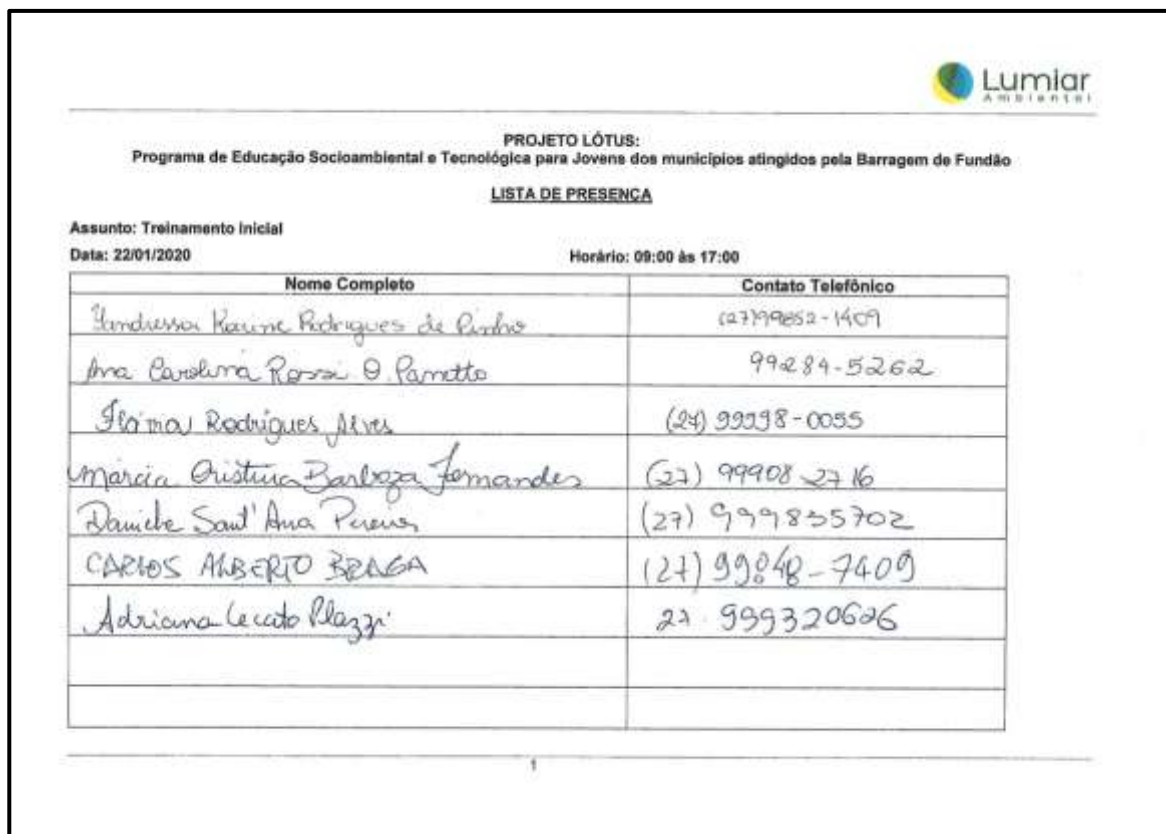 Lumiar
Ambiental
PROJETO LÓTUS:
Programa de Educação Socioambiental e Tecnológica para Jovens dos municípios atingidos pela Barragem de Fundão
LISTA DE PRESENÇA
Assunto: Treinamento Inicial
Data: 22/01/2020 Horário: 09:00 às 17:00
Nome Completo Contato Telefônico
Karine Rodrigues de Pinho (27)99852-1409
Ana Carolina Rossi O. 99284-5262
Rodrigues Alves (27) 99998-0055
Márcia Cristina Barboza Fernandes (27) 99908 2716
Daniele Sant'Ana Pereira (27) 999855702
CARLOS ALBERTO BRAGA (27) 99848-7409
Adriana Plazzi 27. 999320626
1